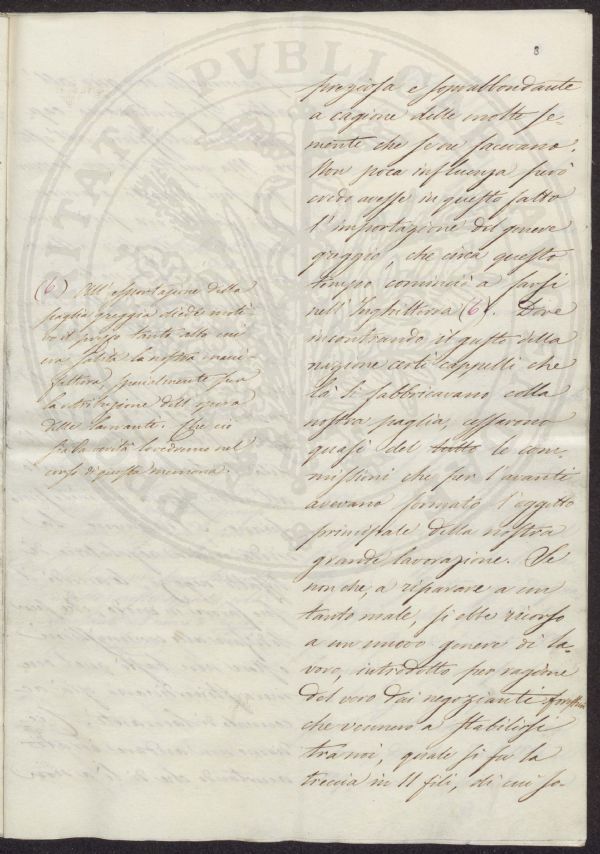 8
preziosa e soprabbondante
a cagione delle molte se-
mente che se ne facevano.
Non poca influenza però
credo avesse in questo fatto
l'importazione del genere
greggio, che circa questo
tempo cominciò a farsi
nell'Inghilterra (6). Dove
incontrando il gusto della
nazione certi cappelli che
là si fabbricavano colla
nostra paglia, cessarono
quasi del tutto le com-
missioni che per l'avanti
avevano formato l'oggetto
principale della nostra
grande lavorazione. Se
non che, a riparare a un
tanto male, si ebbe ricorso
a un nuovo genere di la-
voro, introdotto per ragione
del vero dai negozianti
che vennero a stabilirsi
tra noi, quale si fu la
treccia in 11 fili, di cui so-
(6) All'esportazione della
paglia greggia diede moti-
vo il prezzo tanto alto cui
era salita la nostra mani-
fattura, specialmente per
la retribuzione dell'opera
delle lavoranti. Che ciò
sia la verità lo vedremo nel
corso di questa memoria.
PVBLICAE